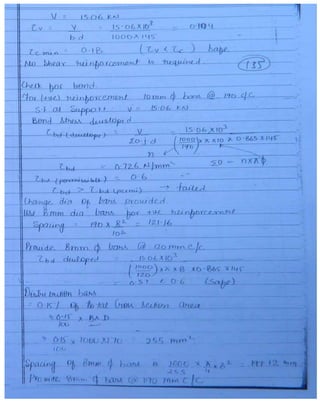 V = 15.06 KN
τv = V / b.d = 15.06×10³ / 1000×145 = 0.104
τc min = 0.18 (τv < τc) Safe
No Shear reinforcement is required.
135
Check for bond
For (+ve) reinforcement 10mm ϕ bars @ 190 c/c
S.F at Support V = 15.06 KN
Bond stress developed
τbd (develope) = V / Σo j d = 15.06×10³ / (1000/190)×π×10×0.865×145
Σo = n×πϕ
τbd = 0.726 N/mm²
τbd (permissible) = 0.6
τbd > τbd (permi) → failed
Change dia of bars provided.
Use 8mm dia bars for +ve reinforcement
Spacing = 190 × 8² / 10² = 121.16
Provide 8mm ϕ bars @ 120 mm c/c
τbd developed = 15.06×10³ / (1000/120)×π×8×0.865×145
= 0.57 < 0.6 (Safe)
Distribution bars
= 0.15% of total cross section area
= 0.15/100 × B×D
= 0.15/100 × 1000×170 = 255 mm²
Spacing of 8mm ϕ bars = 1000/255 × π/4 × 8² = 197.12 mm
Provide 8mm ϕ bars @ 190 mm c/c